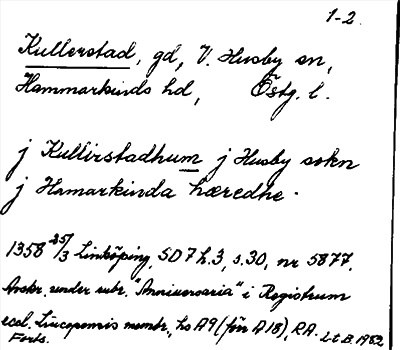 1-2.
Kullerstad, gd, V. Husby sn,
Hammarkinds hd, Östg. l.
j Kullirstadhum j Husby sokn
j Hamarkinda hæredhe.
1358 25/3 Linköping. SD 7 h.3, s.30, nr 5877.
Avskr. under rubr. "Anniversaria" i Registrum
eccl. Lincopensis membr., hs A9 (förr A 18), RA.
Forts. Lt B. 1952